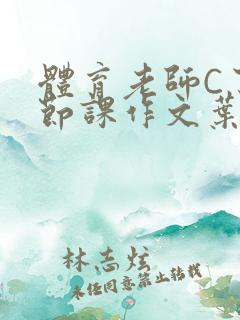 體育老師C了
節課作文葉
林志炫
未经同意禁止转载